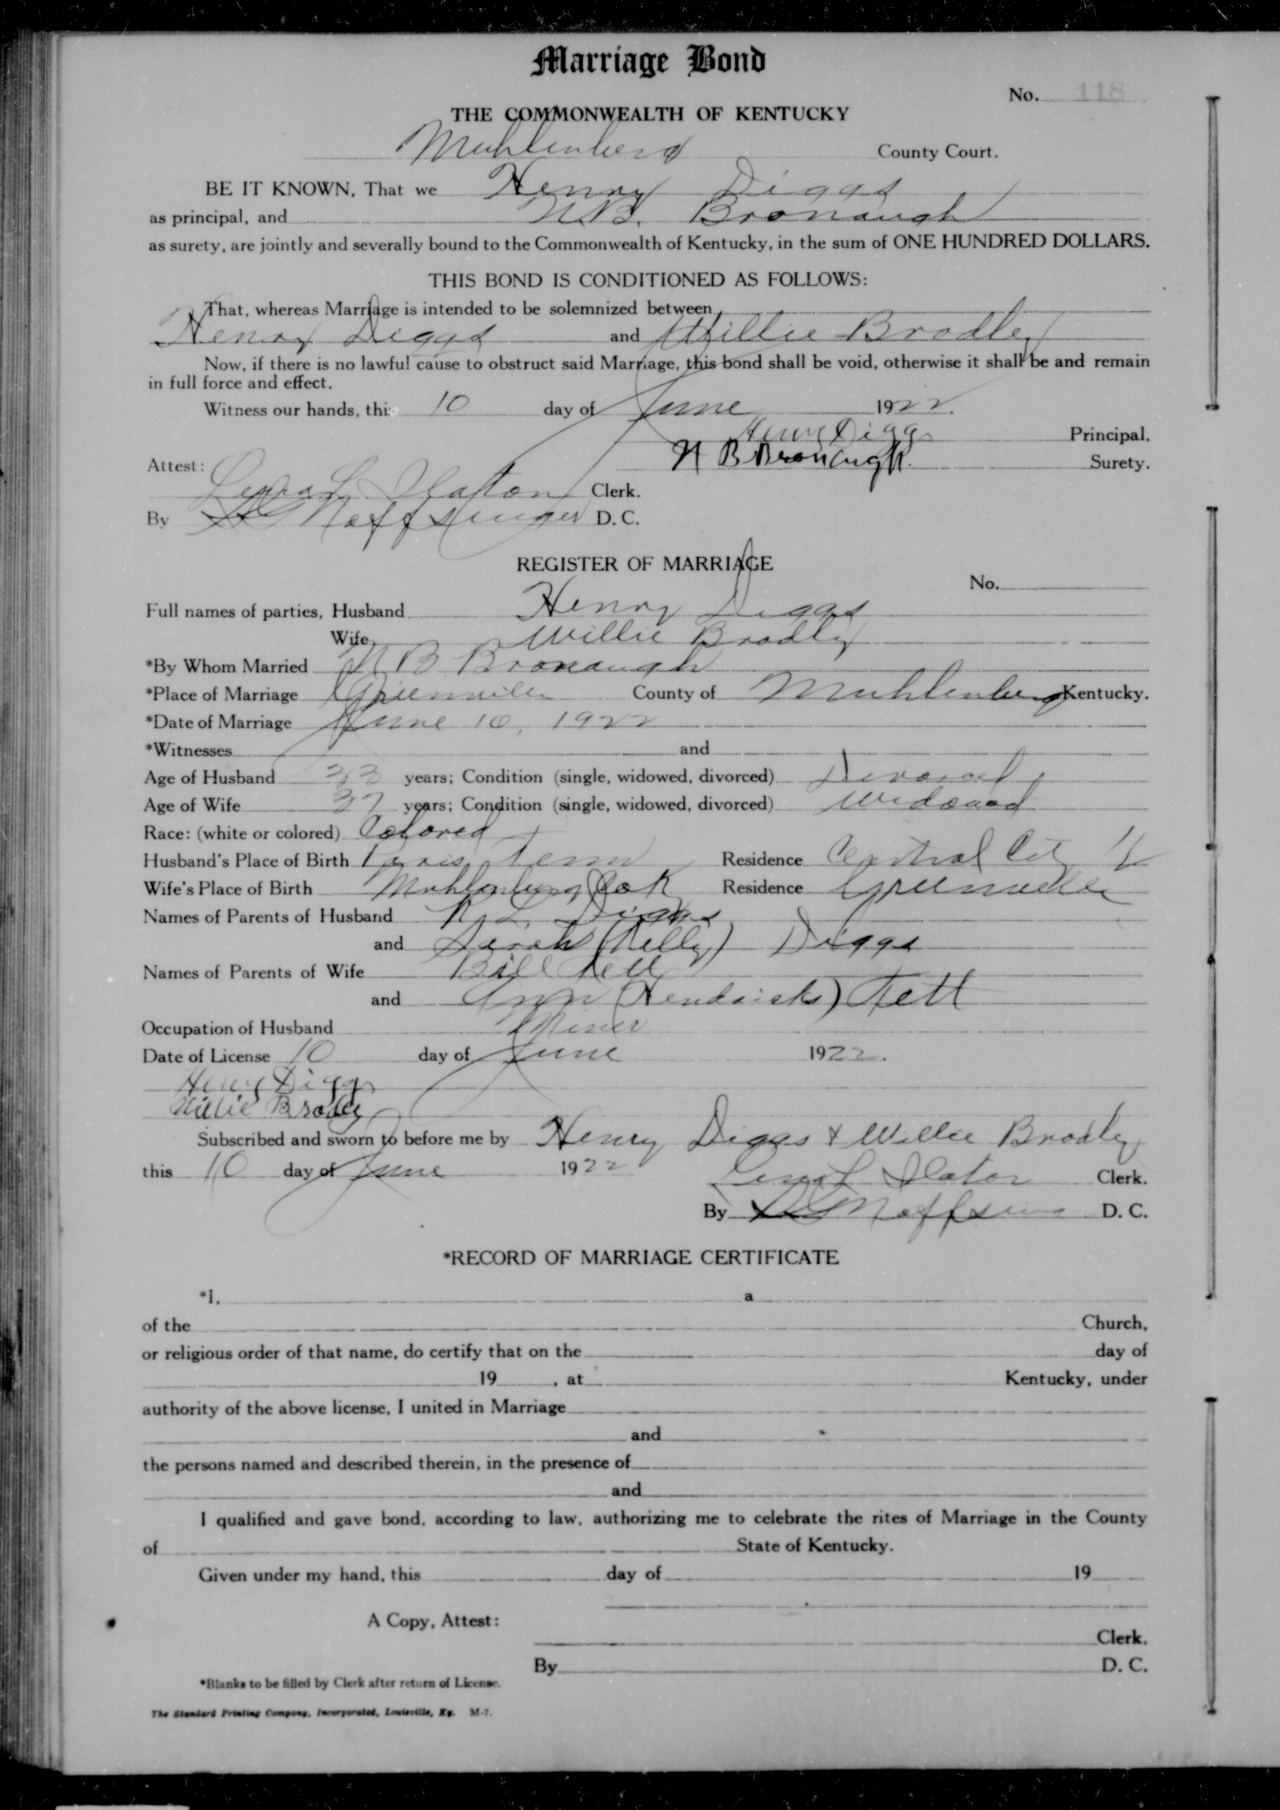 Marriage Bond
No. 118
THE COMMONWEALTH OF KENTUCKY
Muhlenberg County Court.
BE IT KNOWN, That we Henry Diggs
as principal, and N.B. Bronaugh
as surety, are jointly and severally bound to the Commonwealth of Kentucky, in the sum of ONE HUNDRED DOLLARS.
THIS BOND IS CONDITIONED AS FOLLOWS:
That, whereas Marriage is intended to be solemnized between
Henry Diggs and Willie Bradley
Now, if there is no lawful cause to obstruct said Marriage, this bond shall be void, otherwise it shall be and remain
in full force and effect.
Witness our hands, this 10 day of June 1922.
Henry Diggs Principal.
N B Bronaugh Surety.
Attest:
Slaton Clerk.
By Noffsinger D. C.
REGISTER OF MARRIAGE
No.
Full names of parties, Husband Henry Diggs
Wife Willie Bradley
*By Whom Married N B Bronaugh
*Place of Marriage Greenville County of Muhlenberg Kentucky.
*Date of Marriage June 10, 1922
*Witnesses and
Age of Husband 33 years; Condition (single, widowed, divorced) Divorced
Age of Wife 37 years; Condition (single, widowed, divorced) Widowed
Race: (white or colored) Colored
Husband's Place of Birth Paris Tenn Residence Central City
Wife's Place of Birth Muhlenberg Co K Residence Greenville
Names of Parents of Husband R. L. Diggs
and Sarah (Kelly) Diggs
Names of Parents of Wife Bill
and Ann (Hendricks)
Occupation of Husband Miner
Date of License 10 day of June 1922.
Henry Diggs
Willie Bradley
Subscribed and sworn to before me by Henry Diggs & Willie Bradley
this 10 day of June 1922
Slaton Clerk.
By D. C.
*RECORD OF MARRIAGE CERTIFICATE
*I, a
of the Church,
or religious order of that name, do certify that on the day of
19 , at Kentucky, under
authority of the above license, I united in Marriage
and
the persons named and described therein, in the presence of
and
I qualified and gave bond, according to law, authorizing me to celebrate the rites of Marriage in the County
of State of Kentucky.
Given under my hand, this day of 19
A Copy, Attest:
Clerk.
By D. C.
*Blanks to be filled by Clerk after return of License.
The Standard Printing Company, Incorporated, Louisville, Ky. M-7.